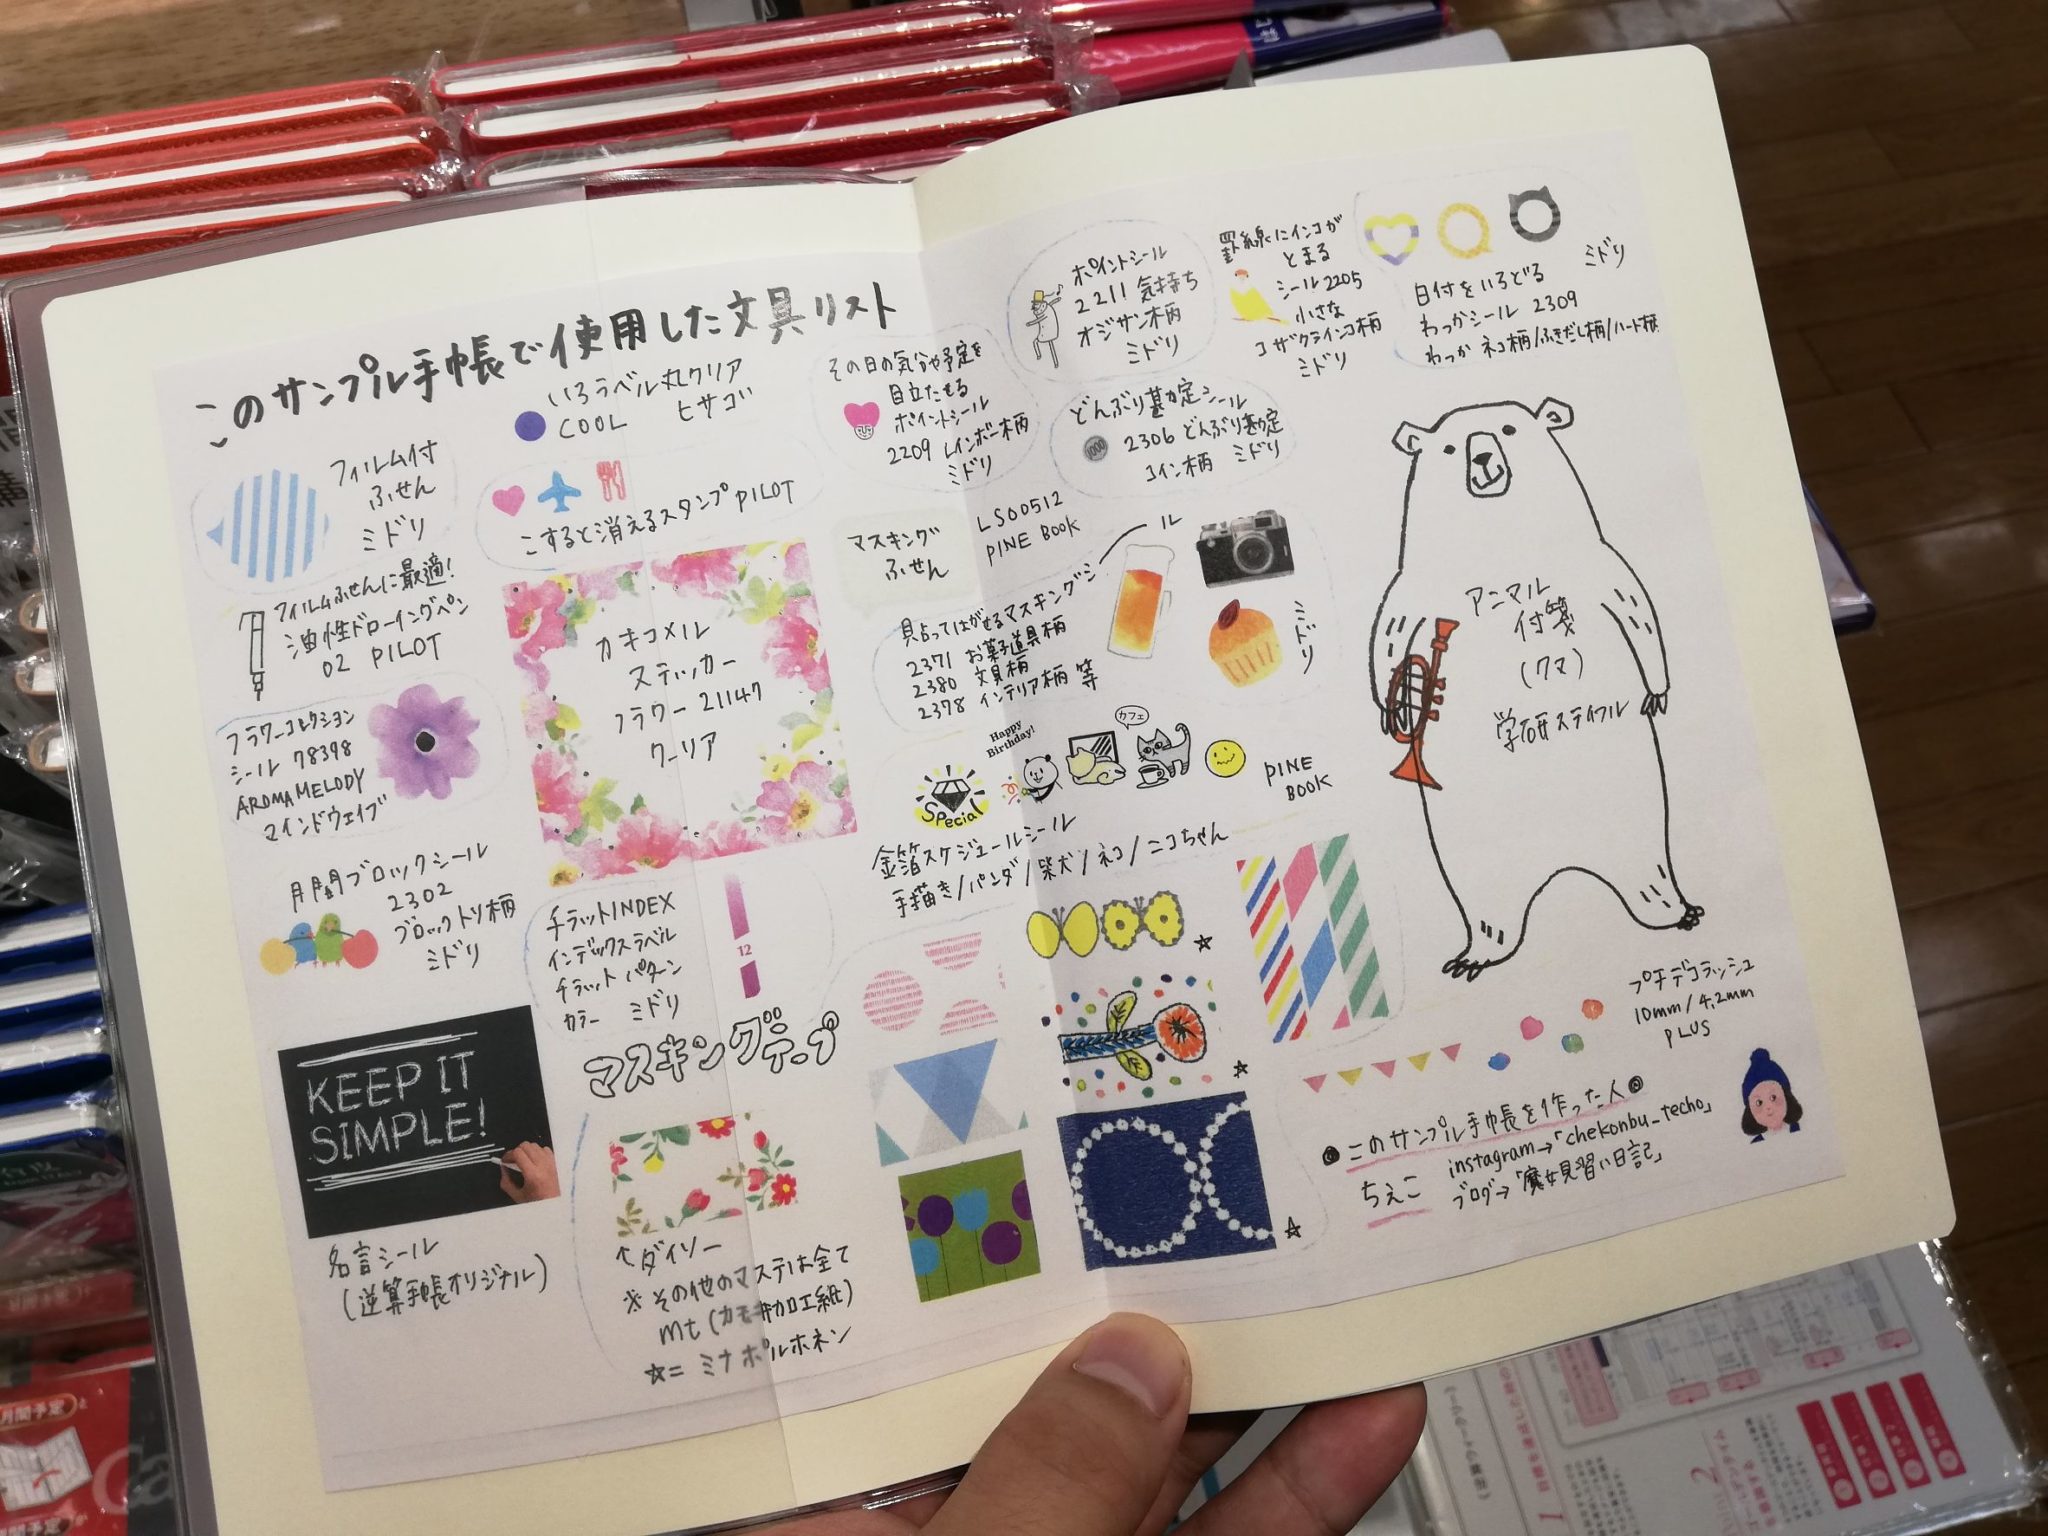 このサンプル手帳で使用した文具リスト
フィルム付
ふせん
ミドリ
いろラベル丸クリア
COOL ヒサゴ
こすると消えるスタンプ PILOT
フィルムふせんに最適!
油性ドローイングペン
02 PILOT
カキコメル
ステッカー
フラワー 21147
クーリア
フラワーコレクション
シール 78398
AROMA MELODY
マインドウェイブ
月間ブロックシール
2302
ブロックトリ柄
ミドリ
チラットINDEX
インデックスラベル
チラット パターン
カラー ミドリ
12
KEEP IT
SIMPLE!
名言シール
(逆算手帳オリジナル)
マスキングテープ
↑ダイソー
※その他のマステは全て
mt(カモ井加工紙)
☆= ミナ ペルホネン
その日の気分や予定を
目立たせる
ポイントシール
2209 レインボー柄
ミドリ
ポイントシール
2211 気持ち
オジサン柄
ミドリ
罫線にインコが
とまる
シール2205
小さな
コザクラインコ柄
ミドリ
ミドリ
日付をいろどる
わっかシール 2309
わっか ネコ柄/ふきだし柄/ハート柄
どんぶり勘定シール
1000
2306 どんぶり勘定
コイン柄 ミドリ
マスキング
ふせん
LS00512
PINE BOOK
貼ってはがせるマスキングシール
2371 お菓子道具柄
2380 文具柄
2378 インテリア柄 等
ミドリ
Happy
Birthday!
カフェ
Special
PINE
BOOK
金箔スケジュールシール
手描き/パンダ/柴犬/ネコ/ニコちゃん
☆
☆
☆
アニマル
付箋
(クマ)
学研ステイフル
プチデコラッシュ
10mm/4.2mm
PLUS
このサンプル手帳を作った人
ちえこ
instagram→「chekonbu_techo」
ブログ→「魔女見習い日記」